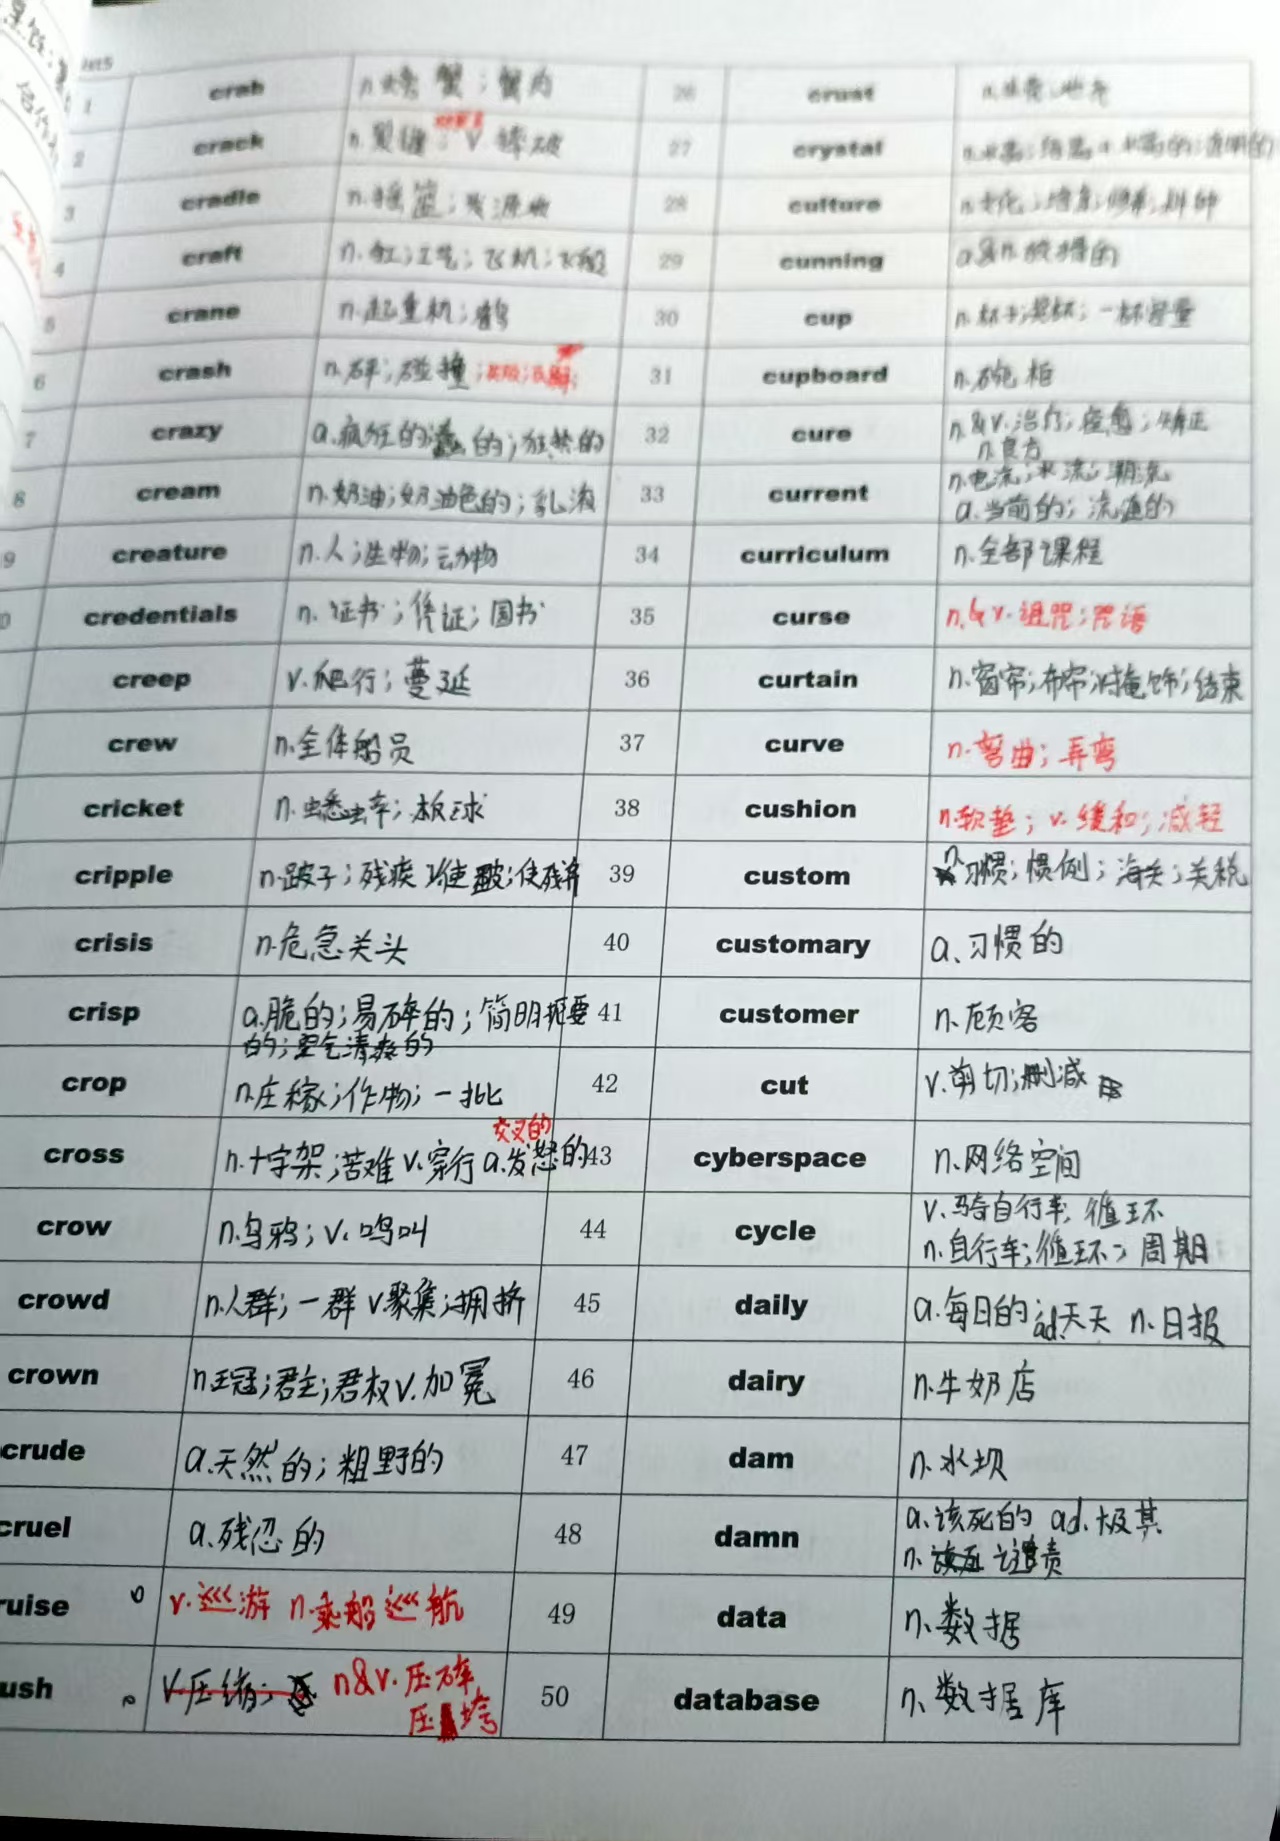 List5
1 crab n. 螃蟹；蟹肉 26 crust
2 crack n. 裂缝；v 碎破 27 crystal
3 cradle n. 摇篮；发源地 28 culture n. 文化；
4 craft n. 工艺；飞机；飞船 29 cunning a&n. 狡猾的
5 crane n. 起重机；鹤 30 cup n. 杯子；奖杯；一杯容量
6 crash n. 碎；碰撞； 31 cupboard n. 碗柜
7 crazy a. 疯狂的；的；狂热的 32 cure n.&v. 治疗；痊愈；矫正
n. 良方
8 cream n. 奶油；奶油色的；乳液 33 current n. 电流；水流；潮流
a. 当前的；流通的
9 creature n. 人；生物；动物 34 curriculum n. 全部课程
0 credentials n. 证书；凭证；国书 35 curse n.&v. 诅咒；咒语
creep v. 爬行；蔓延 36 curtain n. 窗帘；布帘；掩饰；结束
crew n. 全体船员 37 curve n. 弯曲；弄弯
cricket n. 蟋蟀；板球 38 cushion n. 软垫；v. 缓和；减轻
cripple n. 跛子；残疾 v使跛；使残弃 39 custom n 习惯；惯例；海关；关税
crisis n. 危急关头 40 customary a. 习惯的
crisp a. 脆的；易碎的；简明扼要 41 customer n. 顾客
的；空气清爽的
crop n. 庄稼；作物；一批 42 cut v. 剪切；删减
交叉的
cross n. 十字架；苦难 v. 穿行 a. 发怒的 43 cyberspace n. 网络空间
crow n. 乌鸦；v. 鸣叫 44 cycle v. 骑自行车；循环
n. 自行车；循环；周期
crowd n. 人群；一群 v 聚集；拥挤 45 daily a. 每日的 ad. 天天 n. 日报
crown n. 王冠；君主；君权 v. 加冕 46 dairy n. 牛奶店
crude a. 天然的；粗野的 47 dam n. 水坝
cruel a. 残忍的 48 damn a. 该死的 ad. 极其
n. 谴责
ruise v. 巡游 n. 乘船巡航 49 data n. 数据
ush v. 压缩； n&v. 压碎 50 database n. 数据库
压垮